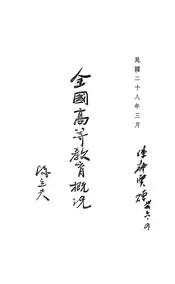 民國二十八年三月
全國高等教育概況
陳立夫